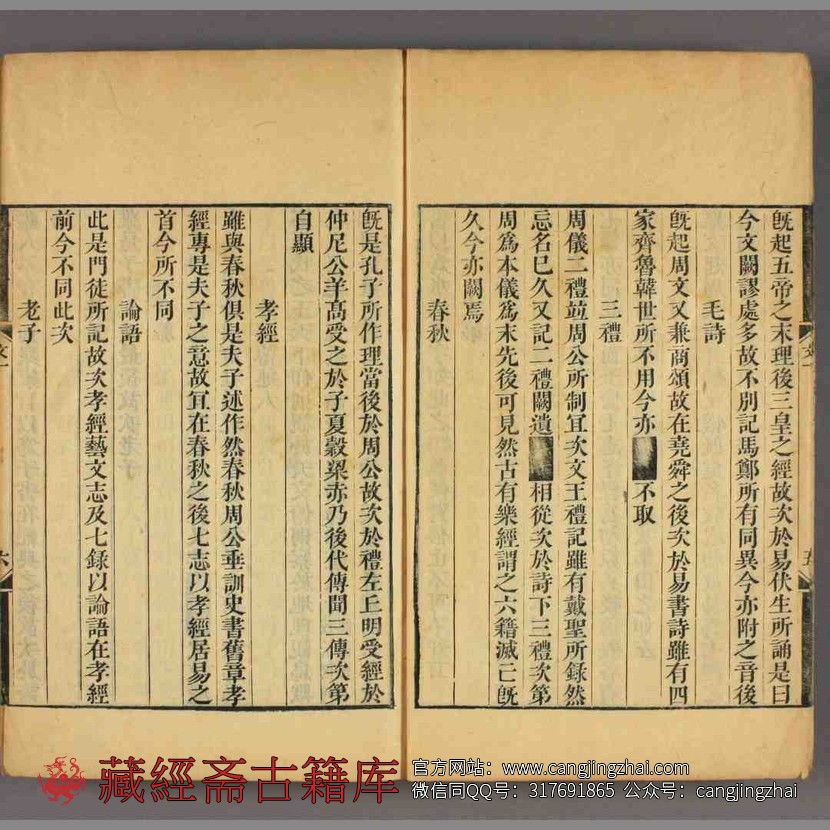 既起五帝之末理後三皇之經故次於易伏生所誦是曰
今文闕謬處多故不別記馬鄭所有同異今亦附之音後
毛詩
既起周文又兼商頌故在堯舜之後次於易書詩雖有四
家齊魯韓世所不用今亦不取
三禮
周儀二禮並周公所制宜次文王禮記雖有戴聖所錄然
忘名巳久又記二禮闕遺相從次於詩下三禮次第
周爲本儀爲末先後可見然古有樂經謂之六籍滅亡既
久今亦闕焉
春秋
既是孔子所作理當後於周公故次於禮左丘明受經於
仲尼公羊髙受之於子夏穀梁赤乃後代傳聞三傳次第
自顯
孝經
雖與春秋俱是夫子述作然春秋周公垂訓史書舊章孝
經專是夫子之意故宜在春秋之後七志以孝經居易之
首今所不同
論語
此是門徒所記故次孝經藝文志及七錄以論語在孝經
前今不同此次
老子
五
六
藏經斋古籍库
官方网站：www.cangjingzhai.com
微信同QQ号：317691865 公众号：cangjingzhai